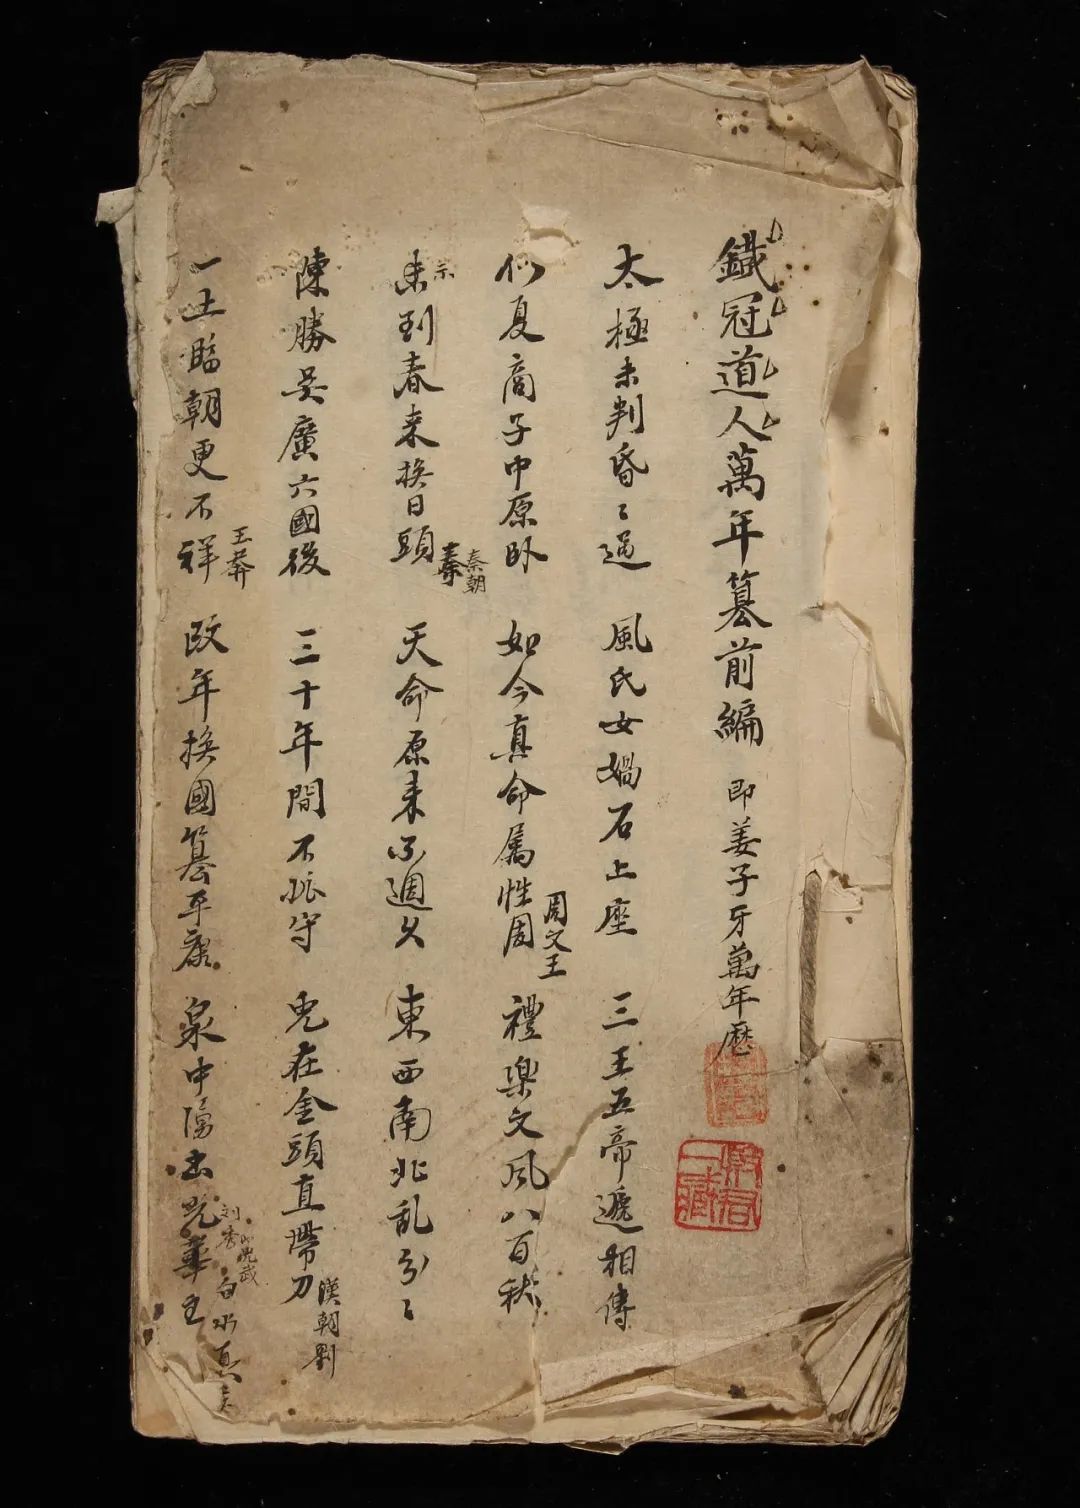 鐵冠道人萬年纂前編 即姜子牙萬年歷
太極未判昏〻過 風氏女媧石上座 三王五帝遞相傳
似夏商子中原卧 如今真命属性周 周文王 禮樂文風八百秋
未到春来換日頭 秦朝 天命原来不週久 東西南北乱分〻
陳勝吴廣六國後 三十年間不能守 兎在金頭直帶刀 漢朝劉
一土臨朝更不祥 王莽 改年換國篡平康 泉中湧出光華主 刘秀 光武 白水真人